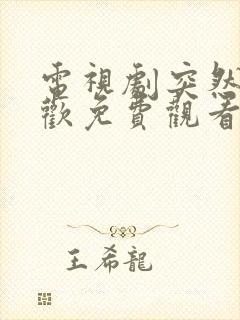 電視劇突然
歡免費觀看
王希龍